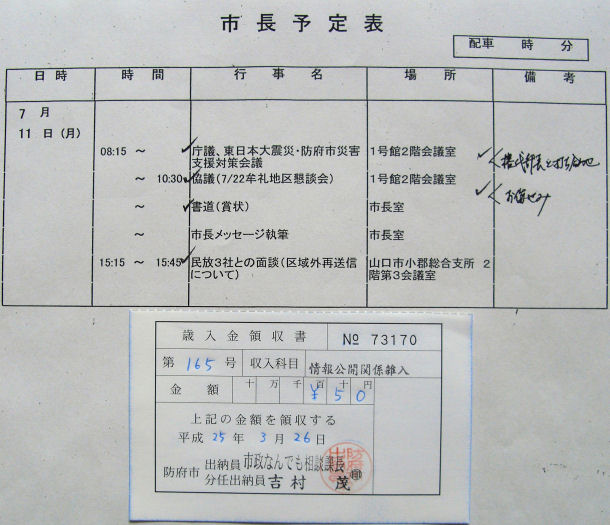 市長予定表
配車 時 分
日時 時間 行事名 場所 備考
7 月
11 日(月)
08:15 ～ 庁議、東日本大震災・防府市災害 1号館2階会議室
支援対策会議
～ 10:30 協議(7/22牟礼地区懇談会) 1号館2階会議室
～ 書道(賞状) 市長室
～ 市長メッセージ執筆 市長室
15:15 ～ 15:45 民放3社との面談(区域外再送信 山口市小郡総合支所 2
について) 階第3会議室
歳入金領収書 № 73170
第 165 号 収入科目 情報公開関係雑入
金額 十万千百十円
¥50
上記の金額を領収する
平成 25 年 3 月 26 日
防府市 出納員 市政なんでも相談課長 ㊞
分任出納員 吉村 茂